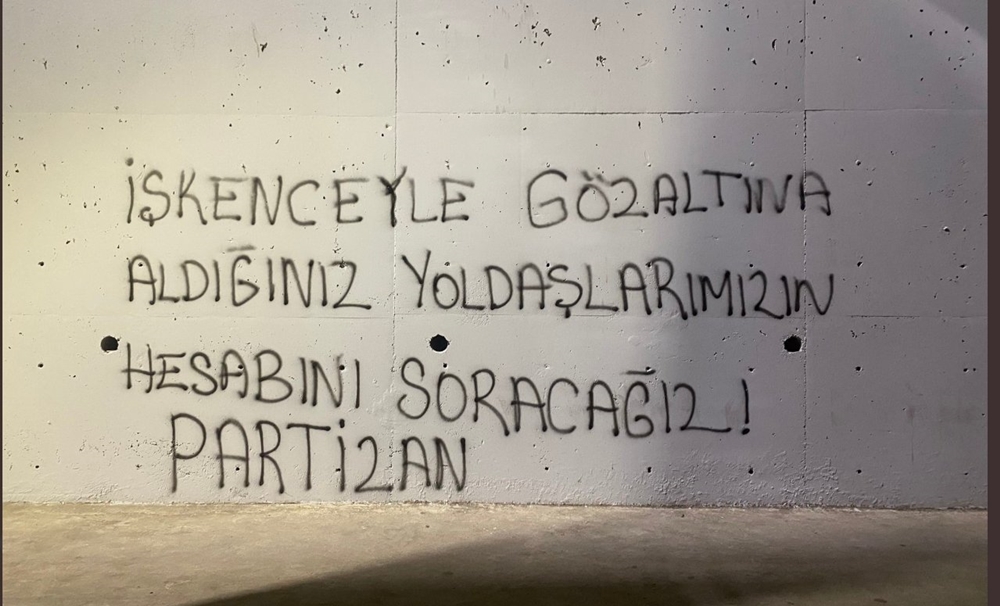 İŞKENCEYLE GÖZALTINA
ALDIĞINIZ YOLDAŞLARIMIZIN
HESABINI SORACAĞIZ!
PARTİZAN